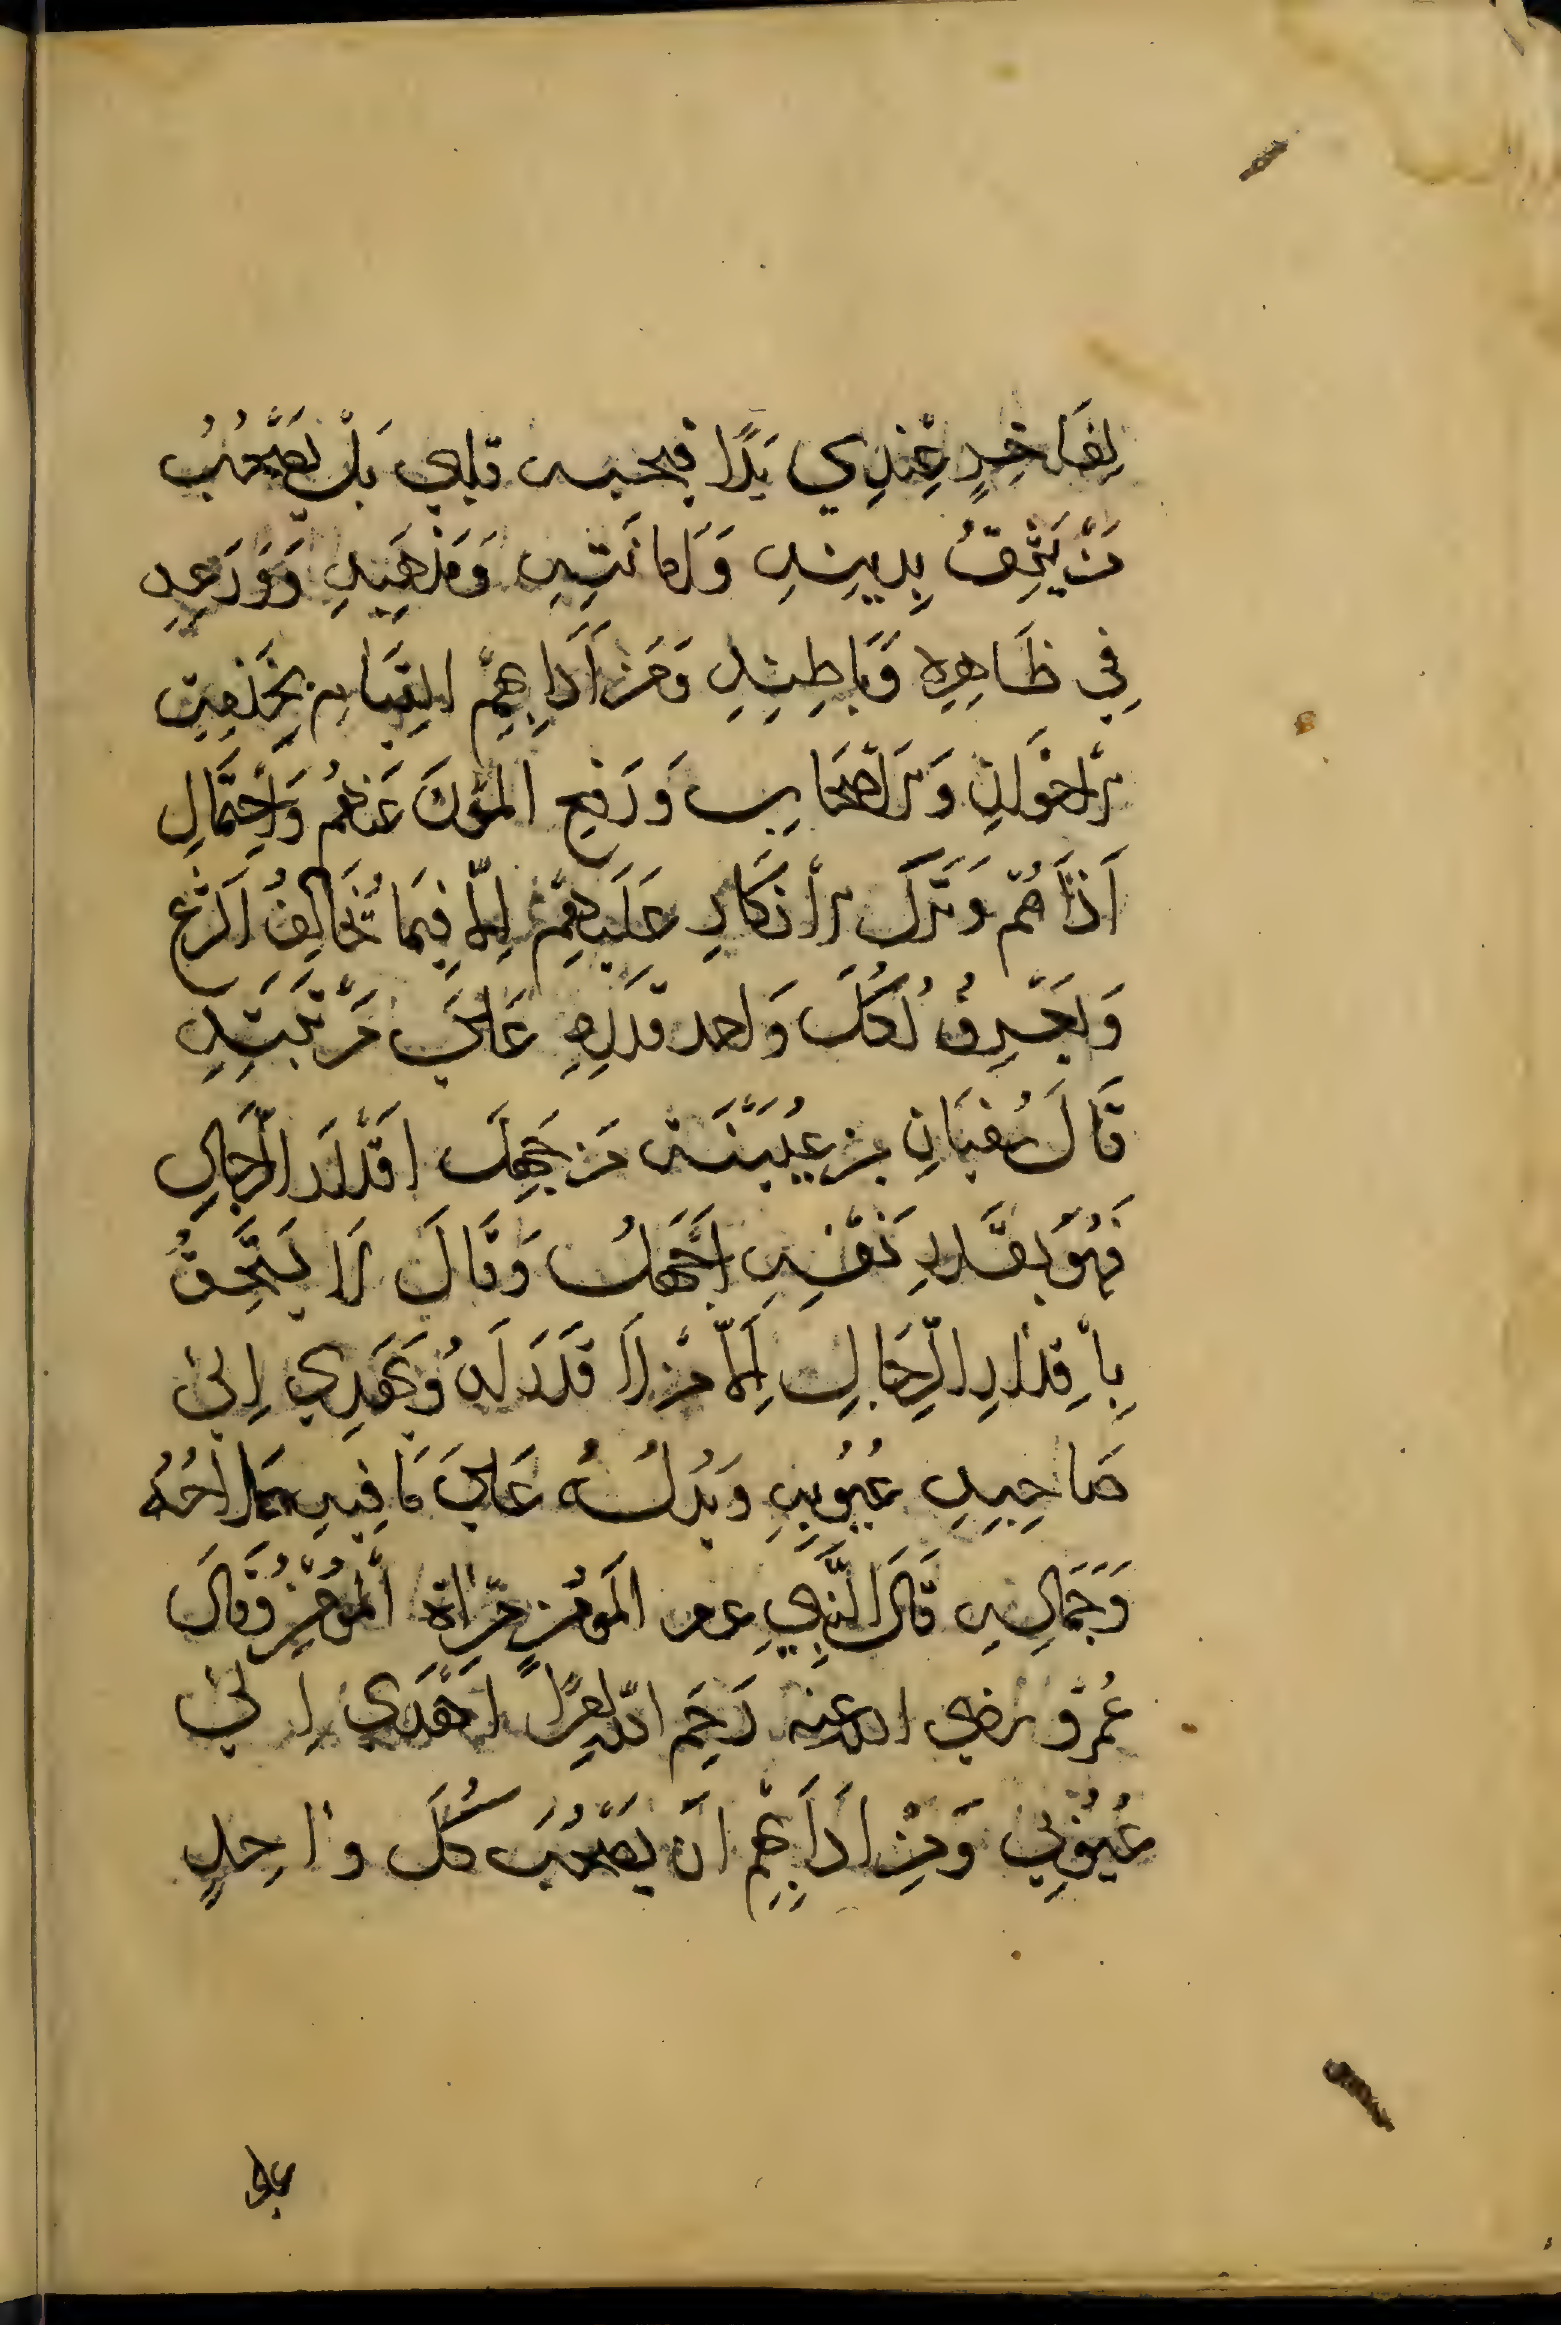 لِفَاجِرٍ عِنْدِي يَدًا فيحبه قلبي بَلْ يَصْحُبُ
مَنْ يَثِقُ بِدينِهِ وَامانَتِهِ وَمَذْهَبِهِ وَوَرَعِهِ
فِي ظَاهِرِه وَبَاطِنِهِ وَمَن اَدَابِهِمْ القِيَامِ بِخِدْمَةِ
الاخْوَانِ وَالاَصْحَابِ وَرَفعِ المؤنَ عَنهُمْ وَاحْتِمَالِ
اَذَاهُمْ وَتَركَ الأنكَارِ عَلَيهِمْ اِلاّ فِيمَا يُخَالِفُ الشَرْعِ
وَيَعْرِفُ لكُلَ وَاحد قَدرِهِ عَلَى مَرْتَبَتِهِ
قَالَ سُفيَانِ بن عُيَيْنَة مَن جَهِلَ اقْدَارَ الرِّجَالِ
فَهُوَ بقَدرِ نَفْسِهِ اَجْهَلُ وَقَالَ لَا يَسْتَحِقُ
بِأقِدَارِ الرِّجَالِ اِلاّ مَن لَا قَدَرَ لَهُ وَيَهْدِي اِلىٰ
صَاحِبِهِ عُيُوبِهِ وَيَدُلُهُ عَلَى مَا فِيهِ صَلَاحُهُ
وَجَمَالِهِ قَالَ النَّبِي عم المَؤمِن مِرْاة المُؤمِنِ وَقَالَ
عُمَرْ رضي الله عنه رَحِمَ اللّٰه امرًأ اَهْدَي اِ لىٰ
عُيُوبي وَمِنْ ادَابِهِمْ انْ يَصْحُبَ كُلَ واحِدٍ
علي